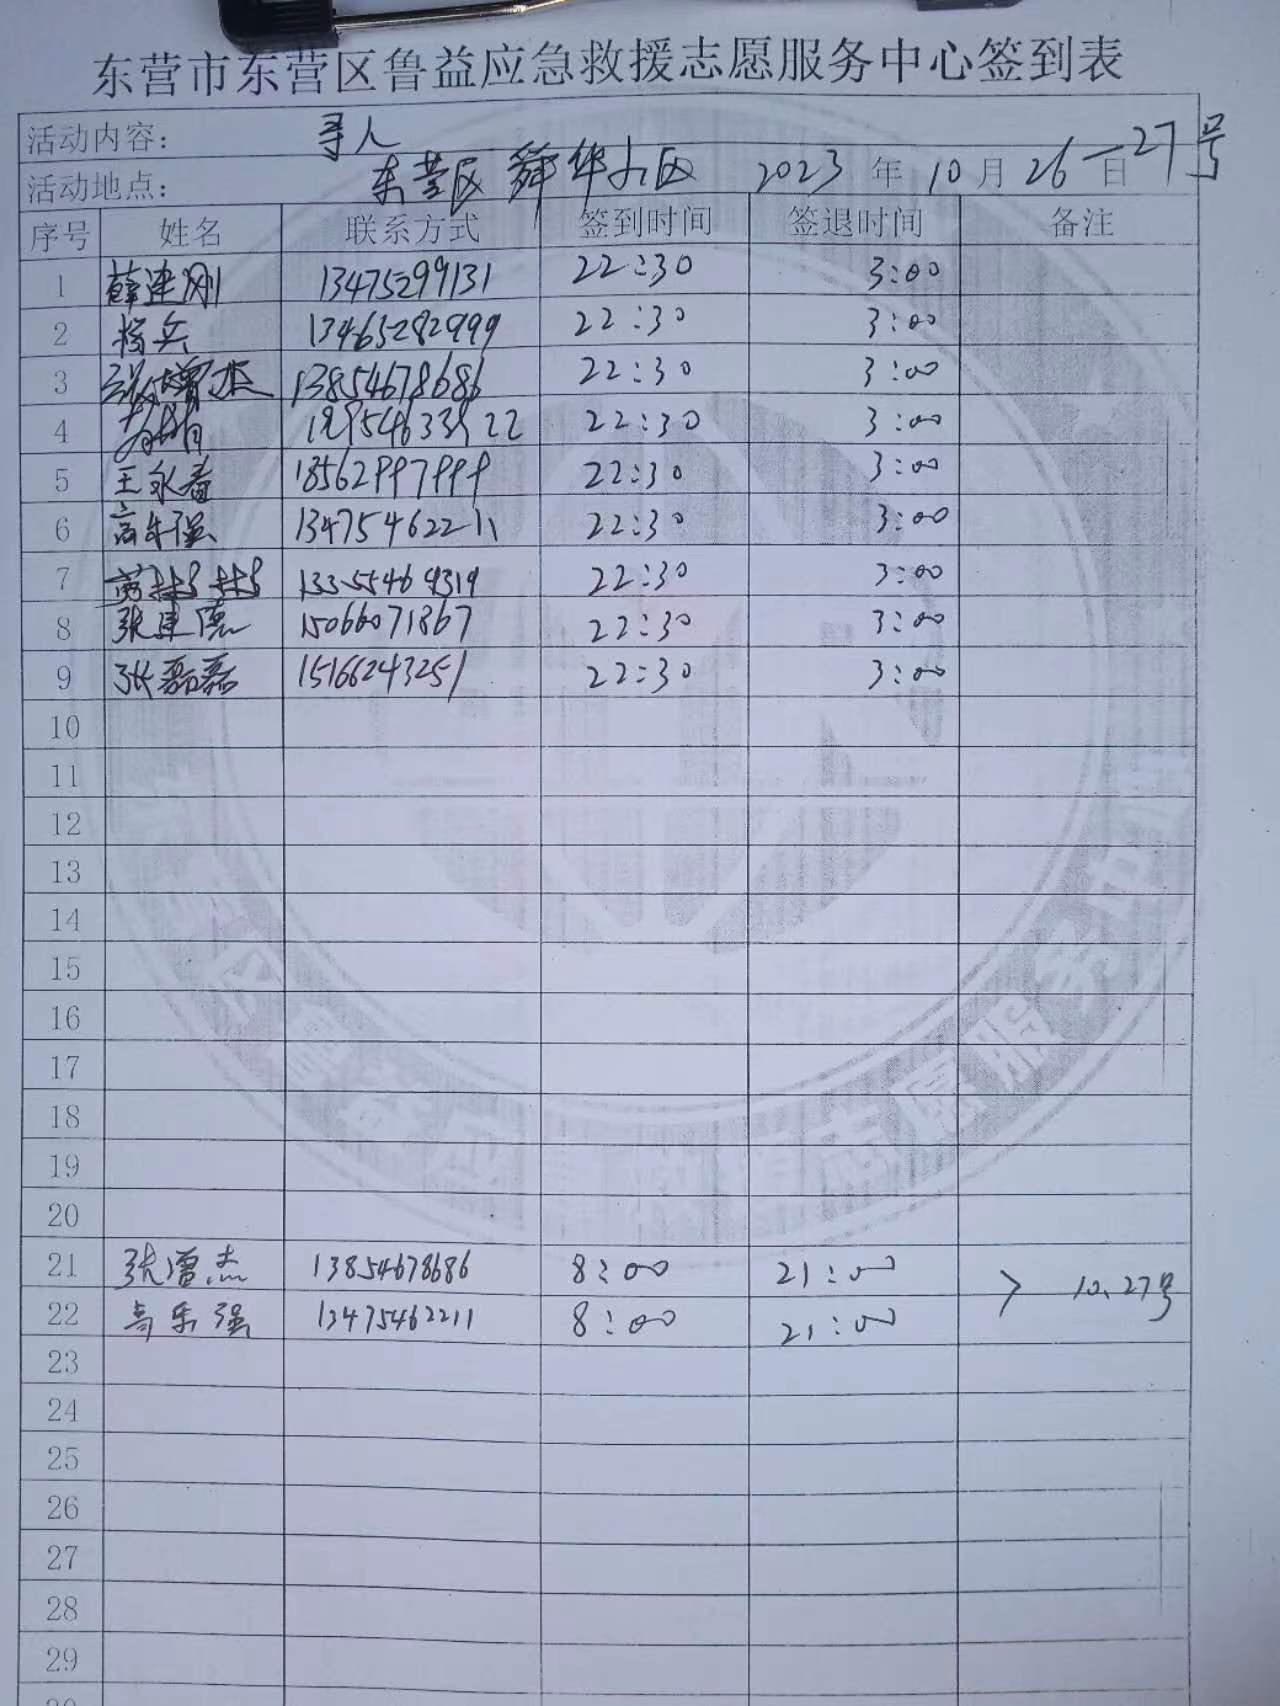 东营市东营区鲁益应急救援志愿服务中心签到表
活动内容: 寻人
活动地点: 东营区舜华小区 2023年10月26日—27号
序号 姓名 联系方式 签到时间 签退时间 备注
1 薛建刚 13475299131 22:30 3:00
2 杨兵 13465282999 22:30 3:00
3 张增杰 13854678686 22:30 3:00
4 22:30 3:00
5 王永春 18562997999 22:30 3:00
6 高乐强 13475462211 22:30 3:00
7 22:30 3:00
8 张建德 15066071867 22:30 3:00
9 张磊磊 15166243251 22:30 3:00
10
11
12
13
14
15
16
17
18
19
20
21 张增杰 13854678686 8:00 21:00
22 高乐强 13475462211 8:00 21:00 > 10.27号
23
24
25
26
27
28
29